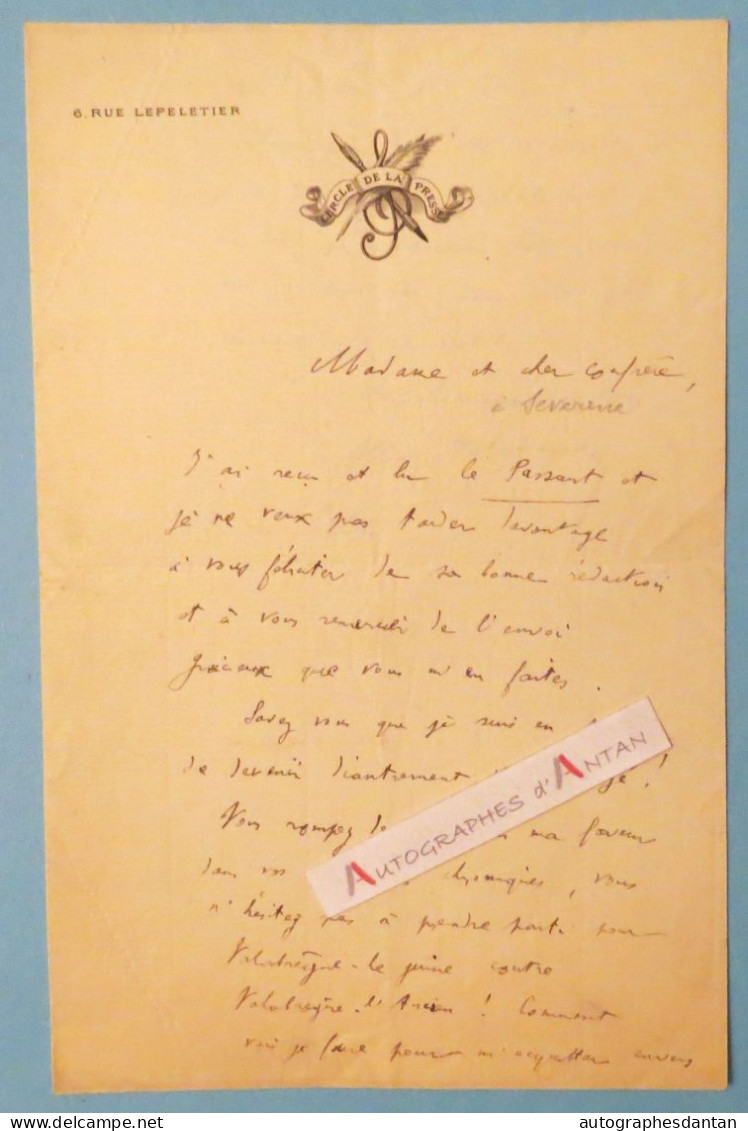 6. RUE LEPELETIER
CERCLE DE LA PRESSE
Madame et cher confrère,
à Severine
J'ai reçu et lu le Passant et
je ne veux pas tarder davantage
à vous féliciter de sa bonne rédaction
et à vous remercier de l'envoi
gracieux que vous m'en faites.
Savez vous que je suis en
de devenir !
Vous rompez ma faveur
dans vos chroniques, vous
n'hésitez pas à prendre parti pour
Valabrègue-le jeune contre
Valabrègue-l'Ancien ! Comment
vais je faire pour m'acquitter envers
AUTOGRAPHES d'ANTAN
autographesdantan